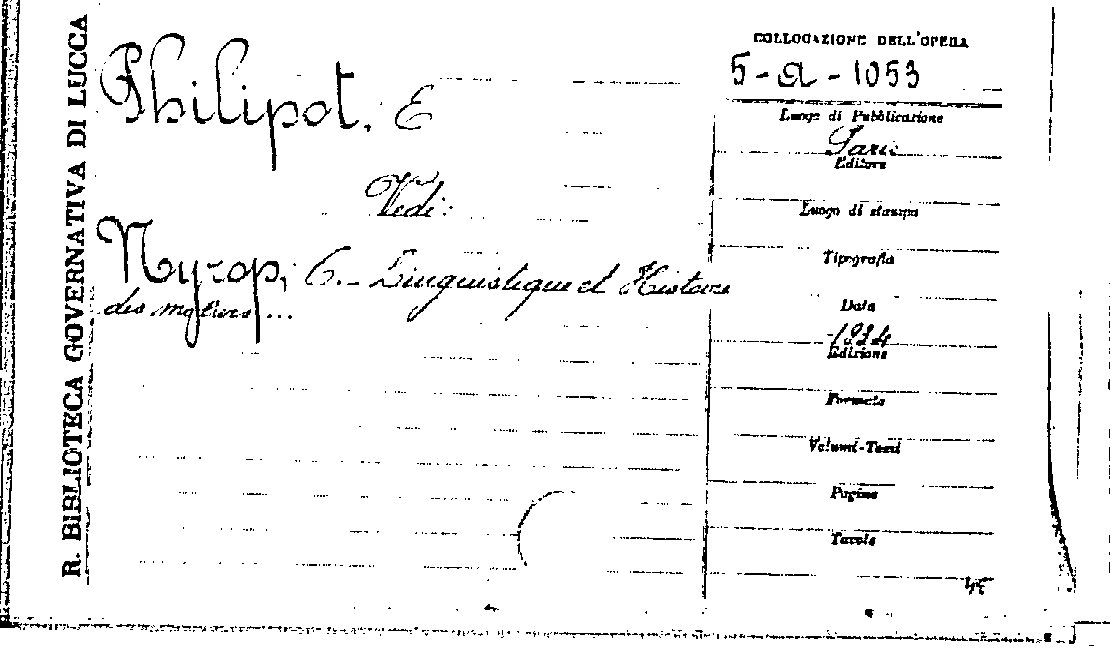 R. BIBLIOTECA GOVERNATIVA DI LUCCA
Philipot, E
Vedi:
Nyrop, C. - Linguistique et Histoire
des mœurs...
COLLOCAZIONE DELL'OPERA
5-A-1053
Luogo di Pubblicazione
Paris
Editore
Luogo di stampa
Tipografia
Data
1934
Edizione
Formato
Volumi-Tomi
Pagine
Tavole